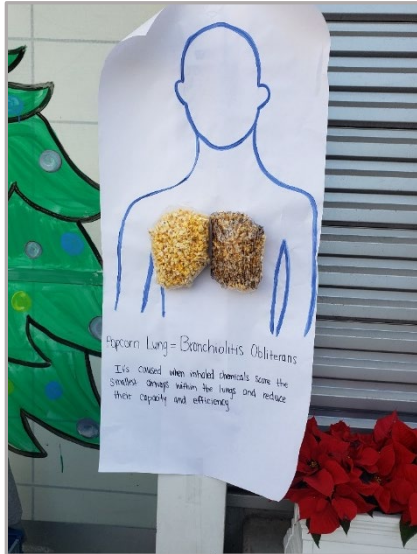 Popcorn Lung = Bronchiolitis Obliterans
It's caused when inhaled chemicals scare the
smallest airways within the lungs and reduce
their capacity and efficiency